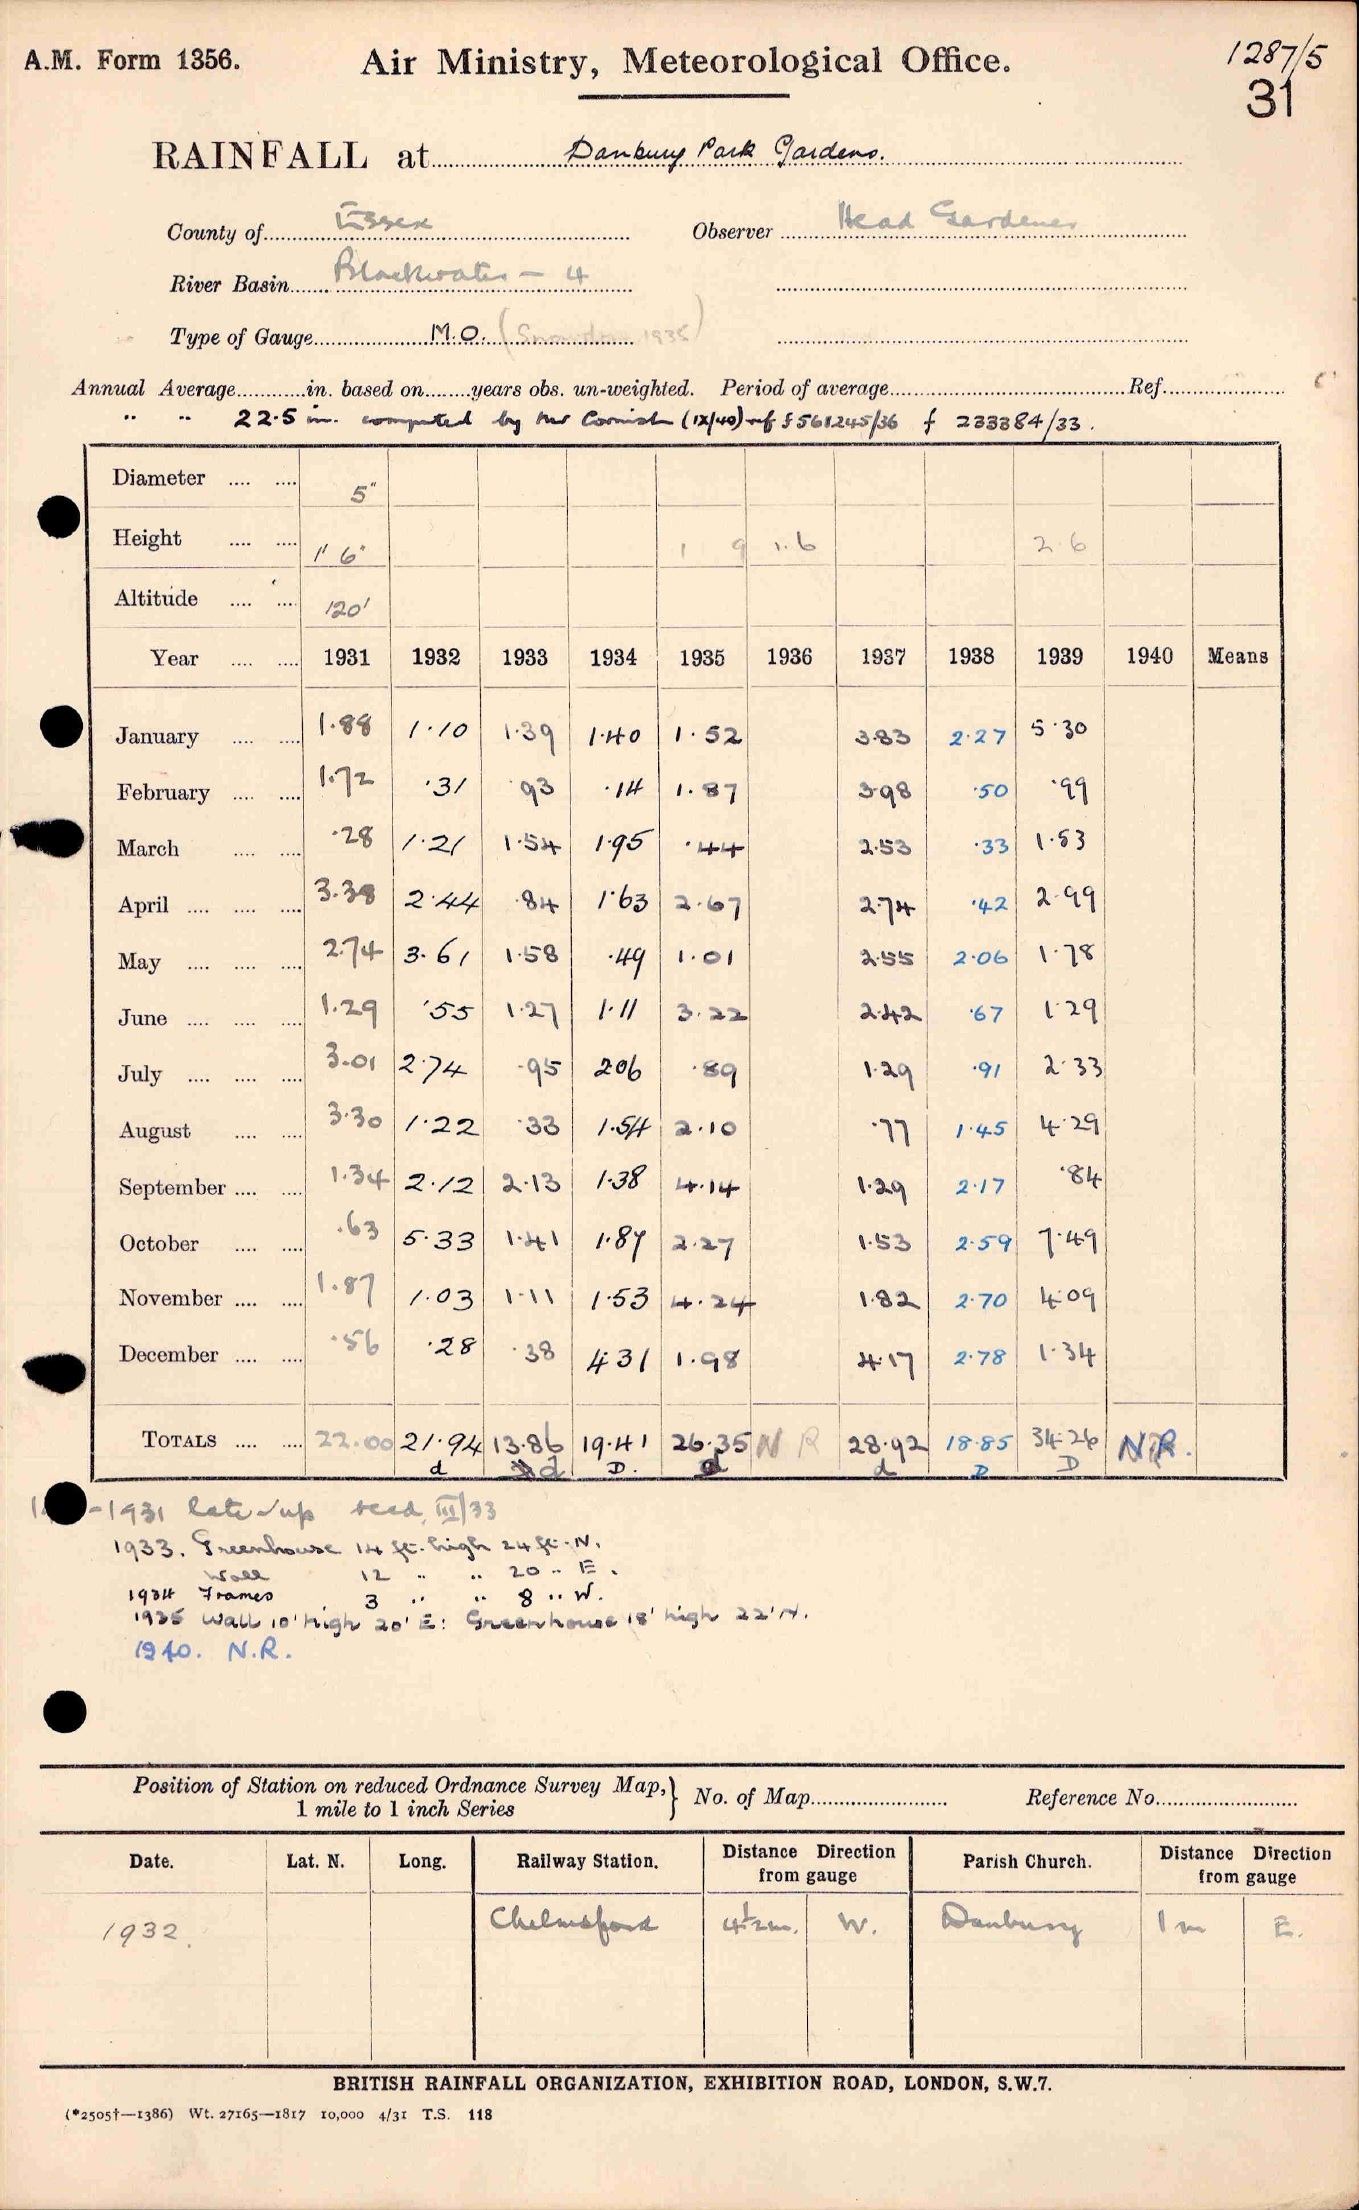 A.M. Form 1356.
Air Ministry, Meteorological Office.
1287/5
31
RAINFALL at Danbury Park Gardens.
County of Essex Observer Head Gardener
River Basin Blackwater — 4
Type of Gauge M.O. (Snowdon 1935)
Annual Average in. based on years obs. un-weighted. Period of average Ref.
" " 22.5 in. computed by Mr Cornish (IX/40) ref f 561245/36 f 233384/33.
Diameter 5"
Height 1' 6" 1 9 1.6 2 6
Altitude 120'
Year 1931 1932 1933 1934 1935 1936 1937 1938 1939 1940 Means
January 1.88 1.10 1.39 1.40 1.52 3.83 2.27 5.30
February 1.72 .31 .93 .14 1.87 3.98 .50 .99
March .28 1.21 1.54 1.95 .44 2.53 .33 1.53
April 3.38 2.44 .84 1.63 2.67 2.74 .42 2.99
May 2.74 3.61 1.58 .49 1.01 2.55 2.06 1.78
June 1.29 .55 1.27 1.11 3.22 2.42 .67 1.29
July 3.01 2.74 .95 2.06 .89 1.29 .91 2.33
August 3.30 1.22 .33 1.54 2.10 .77 1.45 4.29
September 1.34 2.12 2.13 1.38 4.14 1.29 2.17 .84
October .63 5.33 1.41 1.87 2.27 1.53 2.59 7.49
November 1.87 1.03 1.11 1.53 4.24 1.82 2.70 4.09
December .56 .28 .38 4.31 1.98 4.17 2.78 1.34
TOTALS 22.00 21.94 13.86 19.41 26.35 N R 28.92 18.85 34.26 N.R.
d d D. d d D D
-1931 late /up recd. III/33
1933. Greenhouse 14 ft. high 24 ft. N.
Wall 12 " " 20 " E.
1934 Frames 3 " " 8 " W.
1935 Wall 10' high 20' E: Greenhouse 18' high 22' N.
1940. N.R.
Position of Station on reduced Ordnance Survey Map, 1 mile to 1 inch Series } No. of Map Reference No.
Date. Lat. N. Long. Railway Station. Distance Direction from gauge Parish Church. Distance Direction from gauge
1932. Chelmsford 4½m. W. Danbury 1 m E.
BRITISH RAINFALL ORGANIZATION, EXHIBITION ROAD, LONDON, S.W.7.
(*2505†—1386) Wt. 27165—1817 10,000 4/31 T.S. 118